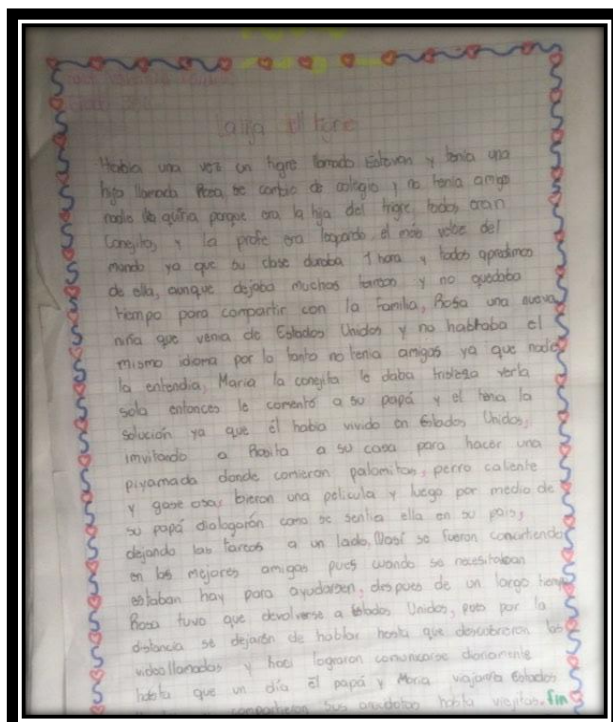 La hija del tigre
Habia una vez un tigre llamado Estevan y tenia una
hija llamada Rosa, se cambio de colegio y no tenia amigo
nadie la quiria porque era la hija del tigre, todos eran
Conejitos, y la profe era leopardo, el más veloz del
mundo ya que su clase duraba 1 hora y todos aprediamos
de ella, aunque dejaba muchas tareas y no quedaba
tiempo para compartir con la familia, Rosa una nueva
niña que venia de Estados Unidos y no hablaba el
mismo idioma por lo tanto no tenia amigos ya que nade
la entendia, Maria la conejita le daba tristeza verla
sola entonces le comentó a su papá y el tenia la
solución ya que él habia vivido en Estados Unidos,
imvitando a Rosita a su casa para hacer una
piyamada donde comieron palomitas, perro caliente
y gaseosa, bieron una pelicula y luego por medio de
su papá dialogarón como se sentia ella en su pais,
dejando las tareas a un lado, así se fueron convirtiendo
en los mejores amigos pues cuando se nesesitaban
estaban hay para ayudarsen, despues de un largo tiempo
Rosa tuvo que devolverse a Estados Unidos, pues por la
distancia se dejarón de hablar hasta que descubrieron las
videollamadas y haci lograron comunicarse diariamente
hasta que un día El papá y Maria viajaron Estados
compartieron sus anecdotas hasta viejitos. fin